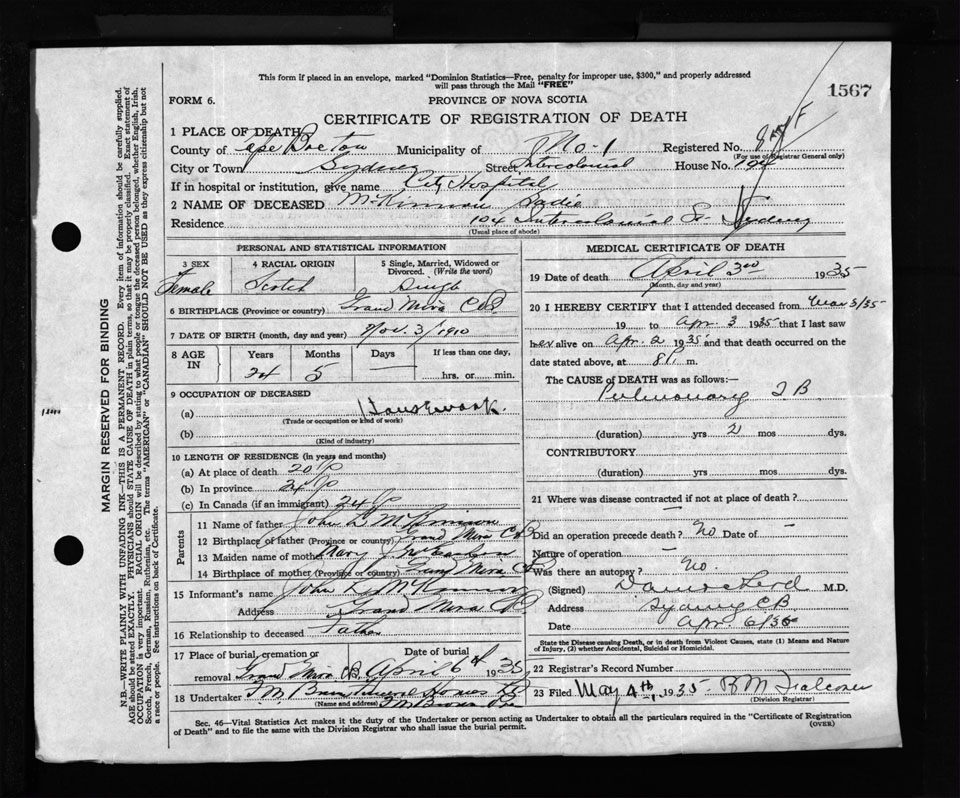 This form if placed in an envelope, marked "Dominion Statistics—Free, penalty for improper use, $300," and properly addressed
will pass through the Mail "FREE"
1567
FORM 6.
PROVINCE OF NOVA SCOTIA
CERTIFICATE OF REGISTRATION OF DEATH
1 PLACE OF DEATH
County of Cape Breton Municipality of No-1 Registered No.
(For use of Registrar General only)
City or Town Sydney Street Intercolonial House No. 104
If in hospital or institution, give name City Hospital
2 NAME OF DECEASED McKinnon Sadie
Residence 104 Intercolonial St- Sydney
(Usual place of abode)
PERSONAL AND STATISTICAL INFORMATION
3 SEX 4 RACIAL ORIGIN 5 Single, Married, Widowed or Divorced. (Write the word)
Female Scotch Single
6 BIRTHPLACE (Province or country) Grand Mira C.B.
7 DATE OF BIRTH (month, day and year) Nov. 3/1910
8 AGE IN Years Months Days If less than one day,
24 5 — hrs. or min.
9 OCCUPATION OF DECEASED
(a) Housework.
(Trade or occupation or kind of work)
(b)
(Kind of industry)
10 LENGTH OF RESIDENCE (in years and months)
(a) At place of death 20
(b) In province 24
(c) In Canada (if an immigrant) 24
Parents
11 Name of father John
12 Birthplace of father (Province or country) Grand Mira CB
13 Maiden name of mother Mary
14 Birthplace of mother (Province or country) Grand Mira, CB
15 Informant's name John McKinnon
Address Grand Mira
16 Relationship to deceased Father
17 Place of burial, cremation or removal Date of burial
Grand Mira CB. April 6th 1935
18 Undertaker T.M. Brown Funeral Homes
(Name and address)
MEDICAL CERTIFICATE OF DEATH
19 Date of death April 3rd 1935
(Month, day and year)
20 I HEREBY CERTIFY that I attended deceased from Mar 3/35
19 to Apr. 3 1935 that I last saw
her alive on Apr. 2 1935 and that death occurred on
date stated above, at 8 P. m.
The CAUSE OF DEATH was as follows:—
Pulmonary TB
(duration) yrs 2 mos dys.
CONTRIBUTORY
(duration) yrs mos dys.
21 Where was disease contracted if not at place of death?
—
Did an operation precede death? No Date of
Nature of operation —
Was there an autopsy? No.
(Signed) M.D.
Address Sydney CB
Date Apr. 6/35
State the Disease causing Death, or in death from Violent Causes, state (1) Means and Nature
of Injury, (2) whether Accidental, Suicidal or Homicidal.
22 Registrar's Record Number
23 Filed May 4th, 1935
(Division Registrar)
Sec. 46—Vital Statistics Act makes it the duty of the Undertaker or person acting as Undertaker to obtain all the particulars required in the "Certificate of Registration
of Death" and to file the same with the Division Registrar who shall issue the burial permit.
(OVER)
MARGIN RESERVED FOR BINDING
N.B.—WRITE PLAINLY WITH UNFADING INK—THIS IS A PERMANENT RECORD. Every item of information should be carefully supplied,
AGE should be stated EXACTLY. PHYSICIANS should STATE CAUSE OF DEATH in plain terms, so that it may be properly classified. Exact statement of
OCCUPATION is very important. RACIAL ORIGIN will be described by stating to what people or tongue the deceased person belonged, whether English, Irish,
Scotch, French, German, Russian, Ruthenian, etc. The terms "AMERICAN" or "CANADIAN" SHOULD NOT BE USED as they express citizenship but not
a race or people. See instructions on back of Certificate.